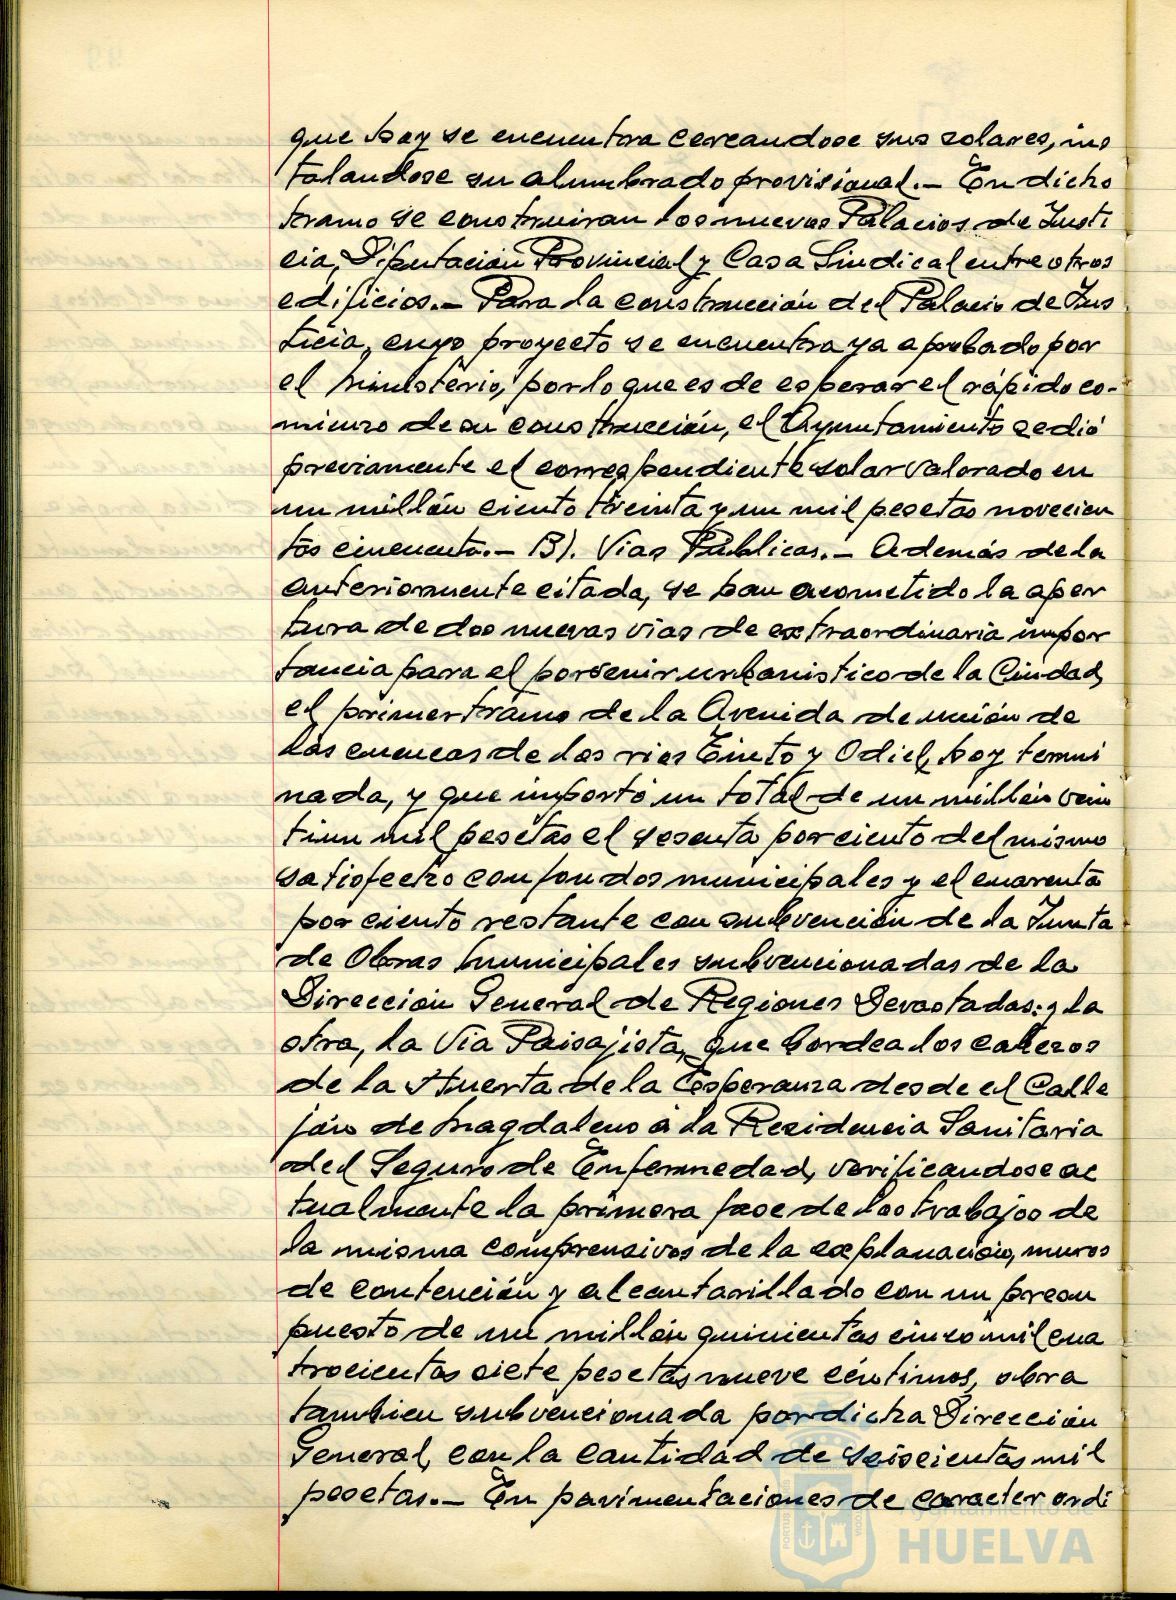 que hoy se encuentra cercandose sus solares, ins
talandose su alumbrado provisional.— En dicho
tramo se construiran los nuevos Palacios de Justi
cia, Diputación Provincial y Casa Sindical entre otros
edificios.— Para la construcción del Palacio de Jus
ticia, cuyo proyecto se encuentra ya aprobado por
el Ministerio, por lo que es de esperar el rápido co-
mienzo de su construcción, el Ayuntamiento cedió
previamente el correspondiente solar valorado en
un millón ciento treinta y un mil pesetas novecien
tas cincuenta.— B). Vias Públicas.— Además de la
anteriormente citada, se han acometido la aper
tura de dos nuevas vias de extraordinaria impor
tancia para el porvenir urbanistico de la Ciudad,
el primer tramo de la Avenida de unión de
las cuencas de los rios Tinto y Odiel, hoy termi
nada, y que importó un total de un millón vein
tiun mil pesetas el sesenta por ciento del mismo
satisfecho con fondos municipales y el cuarenta
por ciento restante con subvención de la Junta
de Obras Municipales subvencionadas de la
Dirección General de Regiones Devastadas: y la
otra, la Via Paisajista, que bordea los cabezos
de la Huerta de la Esperanza desde el Calle
jón de Magdaleno á la Residencia Sanitaria
del Seguro de Enfermedad, verificandose ac
tualmente la primera fase de los trabajos de
la misma comprensivos de la explanación, muros
de contención y alcantarillado con un presu
puesto de un millón quinientas cinco mil cua
trocientas siete pesetas nueve céntimos, obra
tambien subvencionada por dicha Dirección
General, con la cantidad de seiscientas mil
pesetas.— En pavimentaciones de caracter ordi
Ayuntamiento de
HUELVA